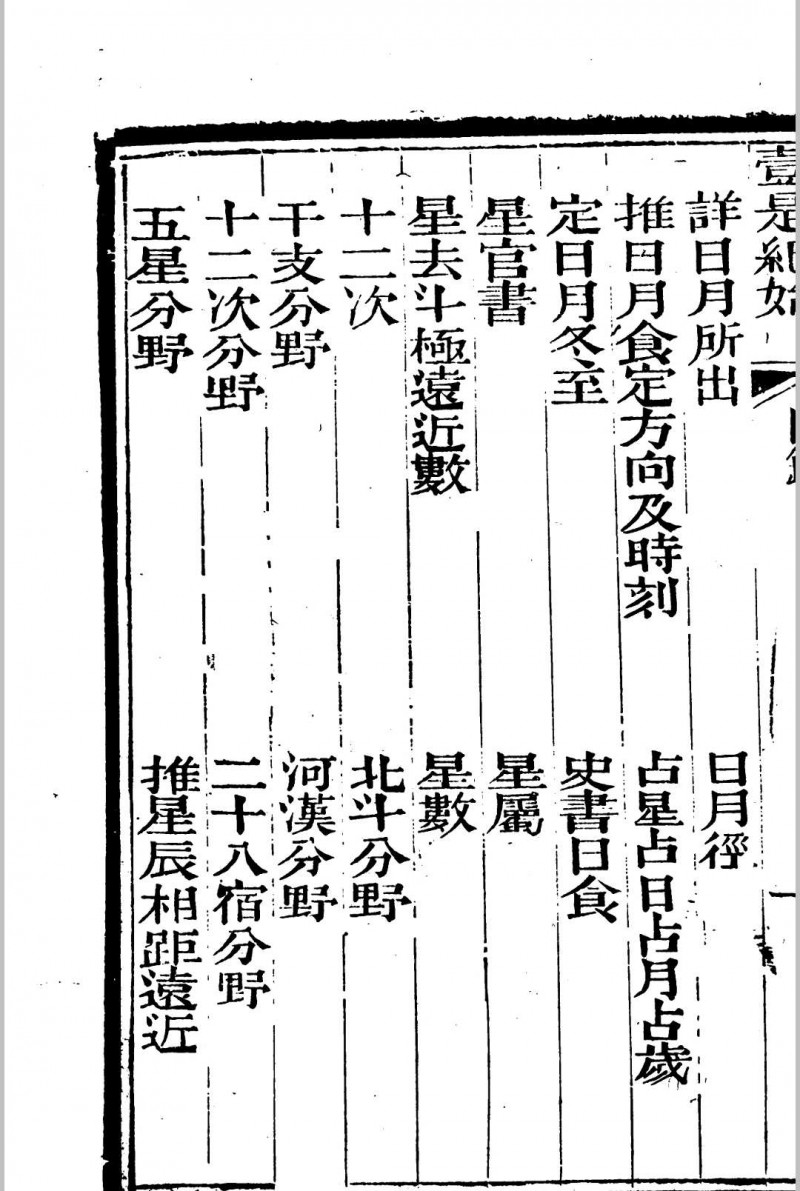 壹是紀始
目錄
一
詳日月所出
日月徑
推日月食定方向及時刻
占星占日占月占歲
定日月冬至
史書日食
星官書
星屬
星去斗極遠近數
星數
十二次
北斗分野
干支分野
河漢分野
十二次分野
二十八宿分野
五星分野
推星辰相距遠近